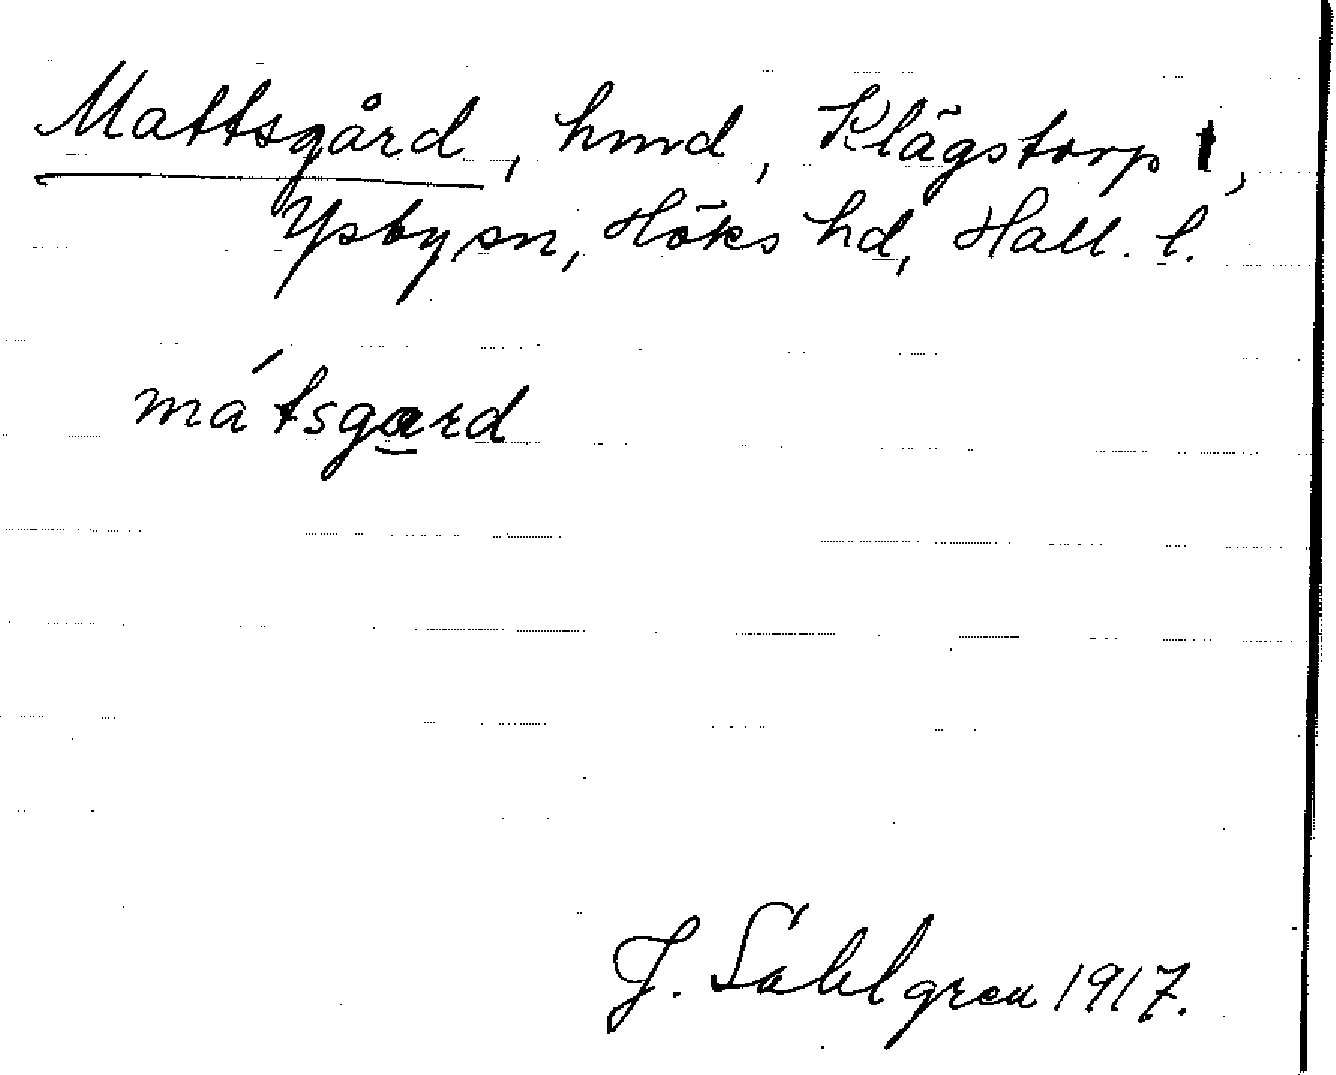 Mattsgård, hmd, Klägstorp 1,
Ysby sn, Höks hd, Hall. l.
mátsgard
J. Sahlgren 1917.